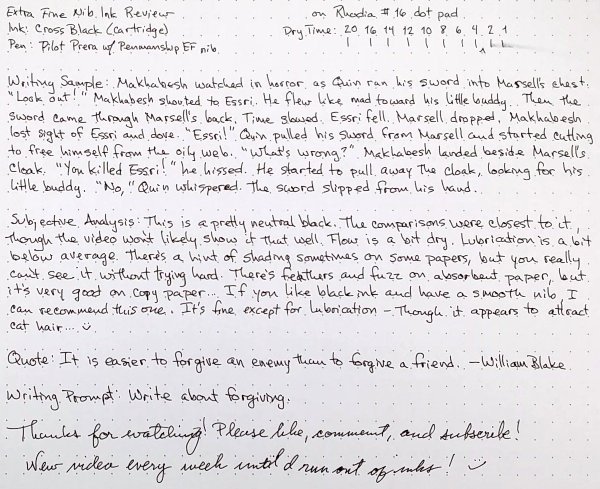 Extra Fine Nib Ink Review on Rhodia #16 dot pad
Ink: Cross Black (cartridge) Dry Time: 20 16 14 12 10 8 6 4 2 1
Pen: Pilot Prera w/ Penmanship EF nib
Writing Sample: Makhabesh watched in horror as Quin ran his sword into Marsell's chest.
"Look out!" Makhabesh shouted to Essri. He flew like mad toward his little buddy. Then the
sword came through Marsell's back. Time slowed. Essri fell. Marsell dropped. Makhabesh
lost sight of Essri and dove. "Essri!" Quin pulled his sword from Marsell and started cutting
to free himself from the oily web. "What's wrong?" Makhabesh landed beside Marsell's
cloak. "You killed Essri!" he hissed. He started to pull away the cloak, looking for his
little buddy. "No," Quin whispered. The sword slipped from his hand.
Subjective Analysis: This is a pretty neutral black. The comparisons were closest to it,
though the video won't likely show it that well. Flow is a bit dry. Lubrication is a bit
below average. There's a hint of shading sometimes on some papers, but you really
can't see it without trying hard. There's feathers and fuzz on absorbent paper, but
it's very good on copy paper... If you like black ink and have a smooth nib, I
can recommend this one. It's fine except for lubrication – Though it appears to attract
cat hair...
Quote: It is easier to forgive an enemy than to forgive a friend. – William Blake
Writing Prompt: Write about forgiving.
Thanks for watching! Please like, comment, and subscribe!
New video every week until I run out of inks!